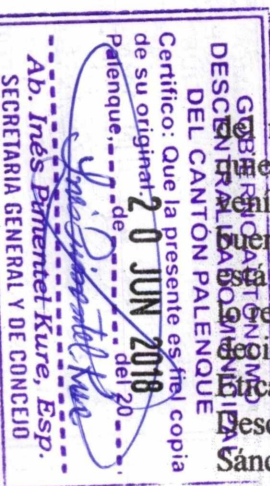 GOBIERNO AUTÓNOMO
DESCENTRALIZADO
DEL CANTÓN PALENQUE
Certifico: Que la presente es fiel copia
de su original
20 JUN 2018
Palenque, de del 20
Ab. Inés Pimentel Kure, Esp.
SECRETARIA GENERAL Y DE CONCEJO
del
veni
buen
está
lo re
deci
Ética
Desc
Sánc